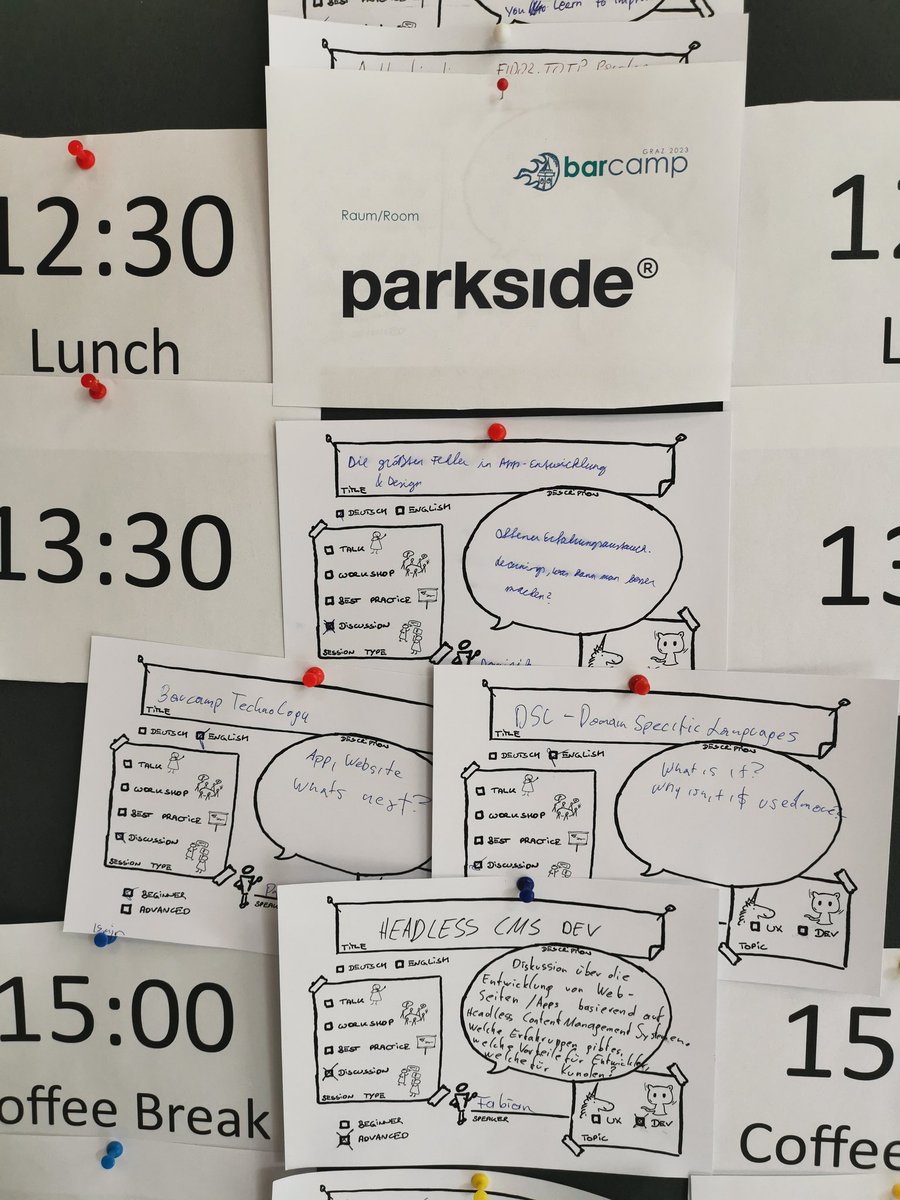 You to Learn to impro
FIDO2, TOTP
GRAZ 2023
barcamp
Raum/Room
parkside®
12:30
Lunch
12
L
13:30
13
Die größten Fehler in App-Entwicklung
& Design
TITLE
DESCRIPTION
DEUTSCH ENGLISH
TALK
WORKSHOP
BEST PRACTICE
DISCUSSION
SESSION TYPE
Offener Erfahrungsaustausch.
Learnings, was kann man besser
machen?
Dominik
Barcamp Technology
TITLE
DESCRIPTION
DEUTSCH ENGLISH
TALK
WORKSHOP
BEST PRACTICE
DISCUSSION
SESSION TYPE
App, Website
Whats next?
BEGINNER
ADVANCED
SPEAK
15 min
DSL - Domain Specific Languages
TITLE
DESCRIPTION
DEUTSCH ENGLISH
TALK
WORKSHOP
BEST PRACTICE
DISCUSSION
What is it?
Why isn't it used more?
UX DEV
TOPIC
HEADLESS CMS DEV
TITLE
DESCRIPTION
DEUTSCH ENGLISH
TALK
WORKSHOP
BEST PRACTICE
DISCUSSION
SESSION TYPE
Diskussion über die
Entwicklung von Web-
Seiten/Apps basierend auf
Headless Content Management Systemen.
Welche Erfahrungen gibt es,
welche Vorteile für Entwickler,
welche für Kunden?
Fabian
SPEAKER
BEGINNER
ADVANCED
UX DEV
TOPIC
15:00
offee Break
15
Coffee